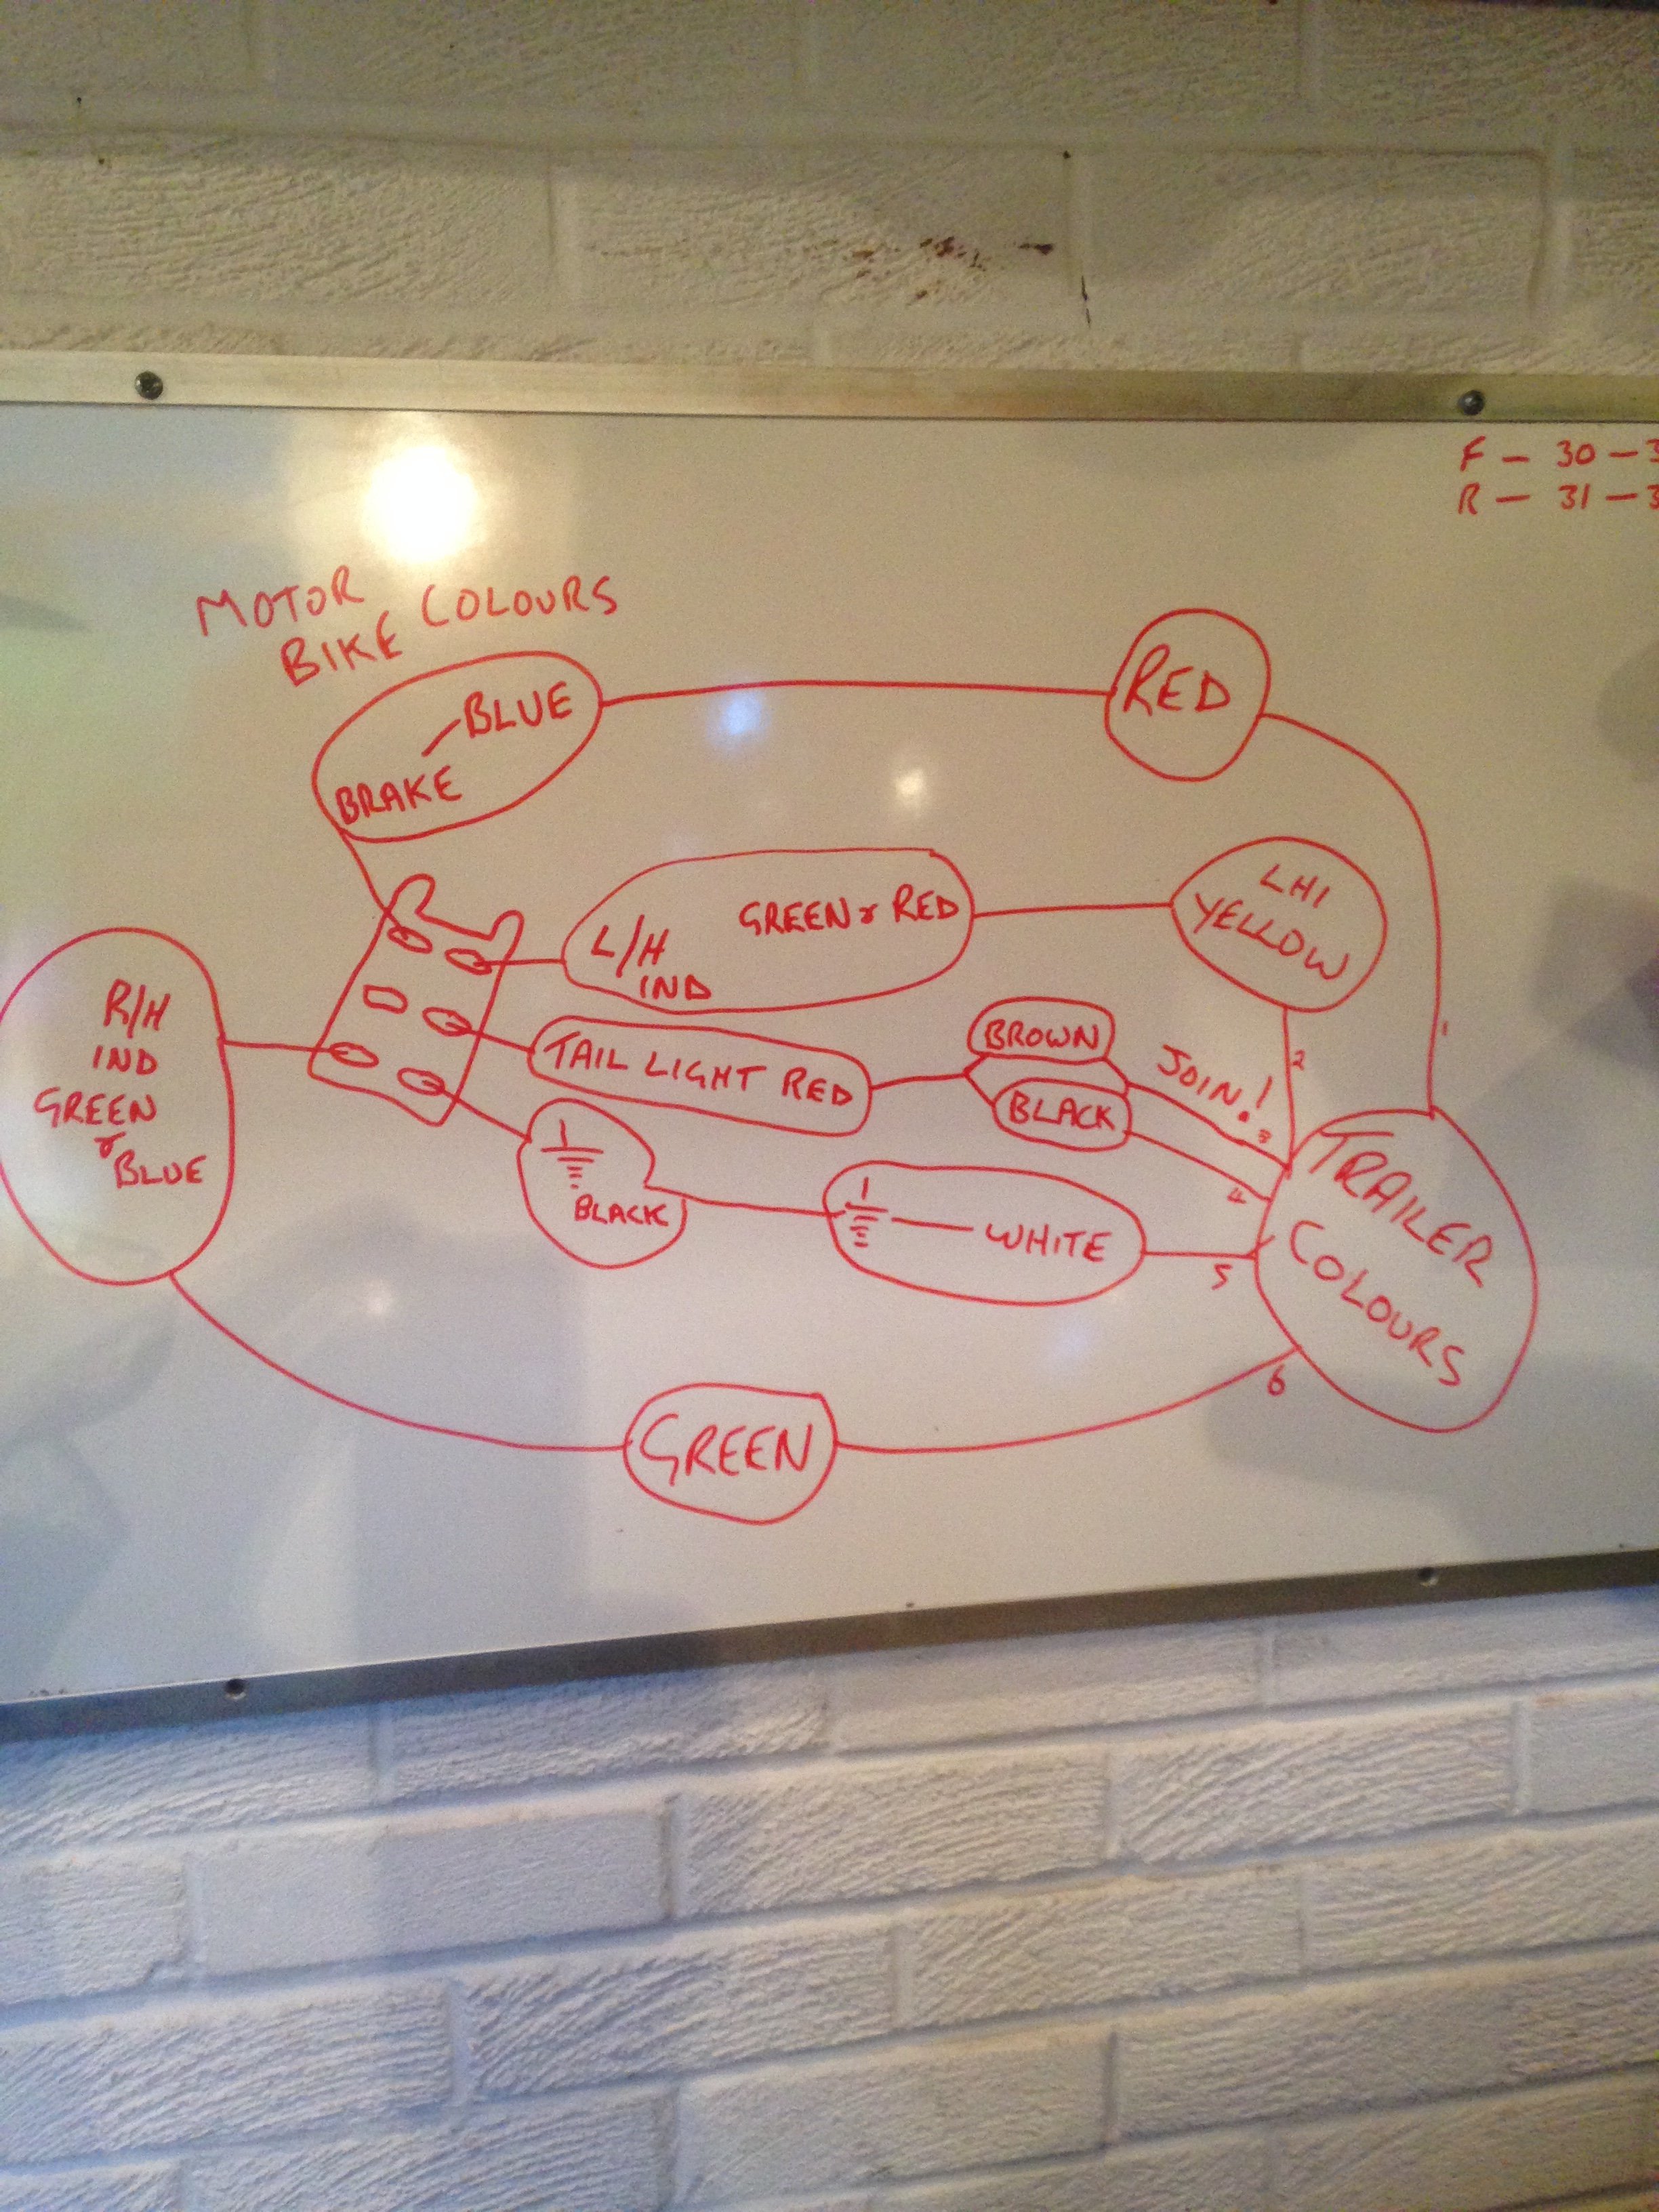 F - 30 - 3
R - 31 - 3
MOTOR
BIKE COLOURS
BLUE
BRAKE
RED
L/H
IND
GREEN & RED
LHI
YELLOW
R/H
IND
GREEN
&
BLUE
TAIL LIGHT RED
BROWN
BLACK
JOIN!
1
2
3
4
5
6
BLACK
WHITE
TRAILER
COLOURS
GREEN